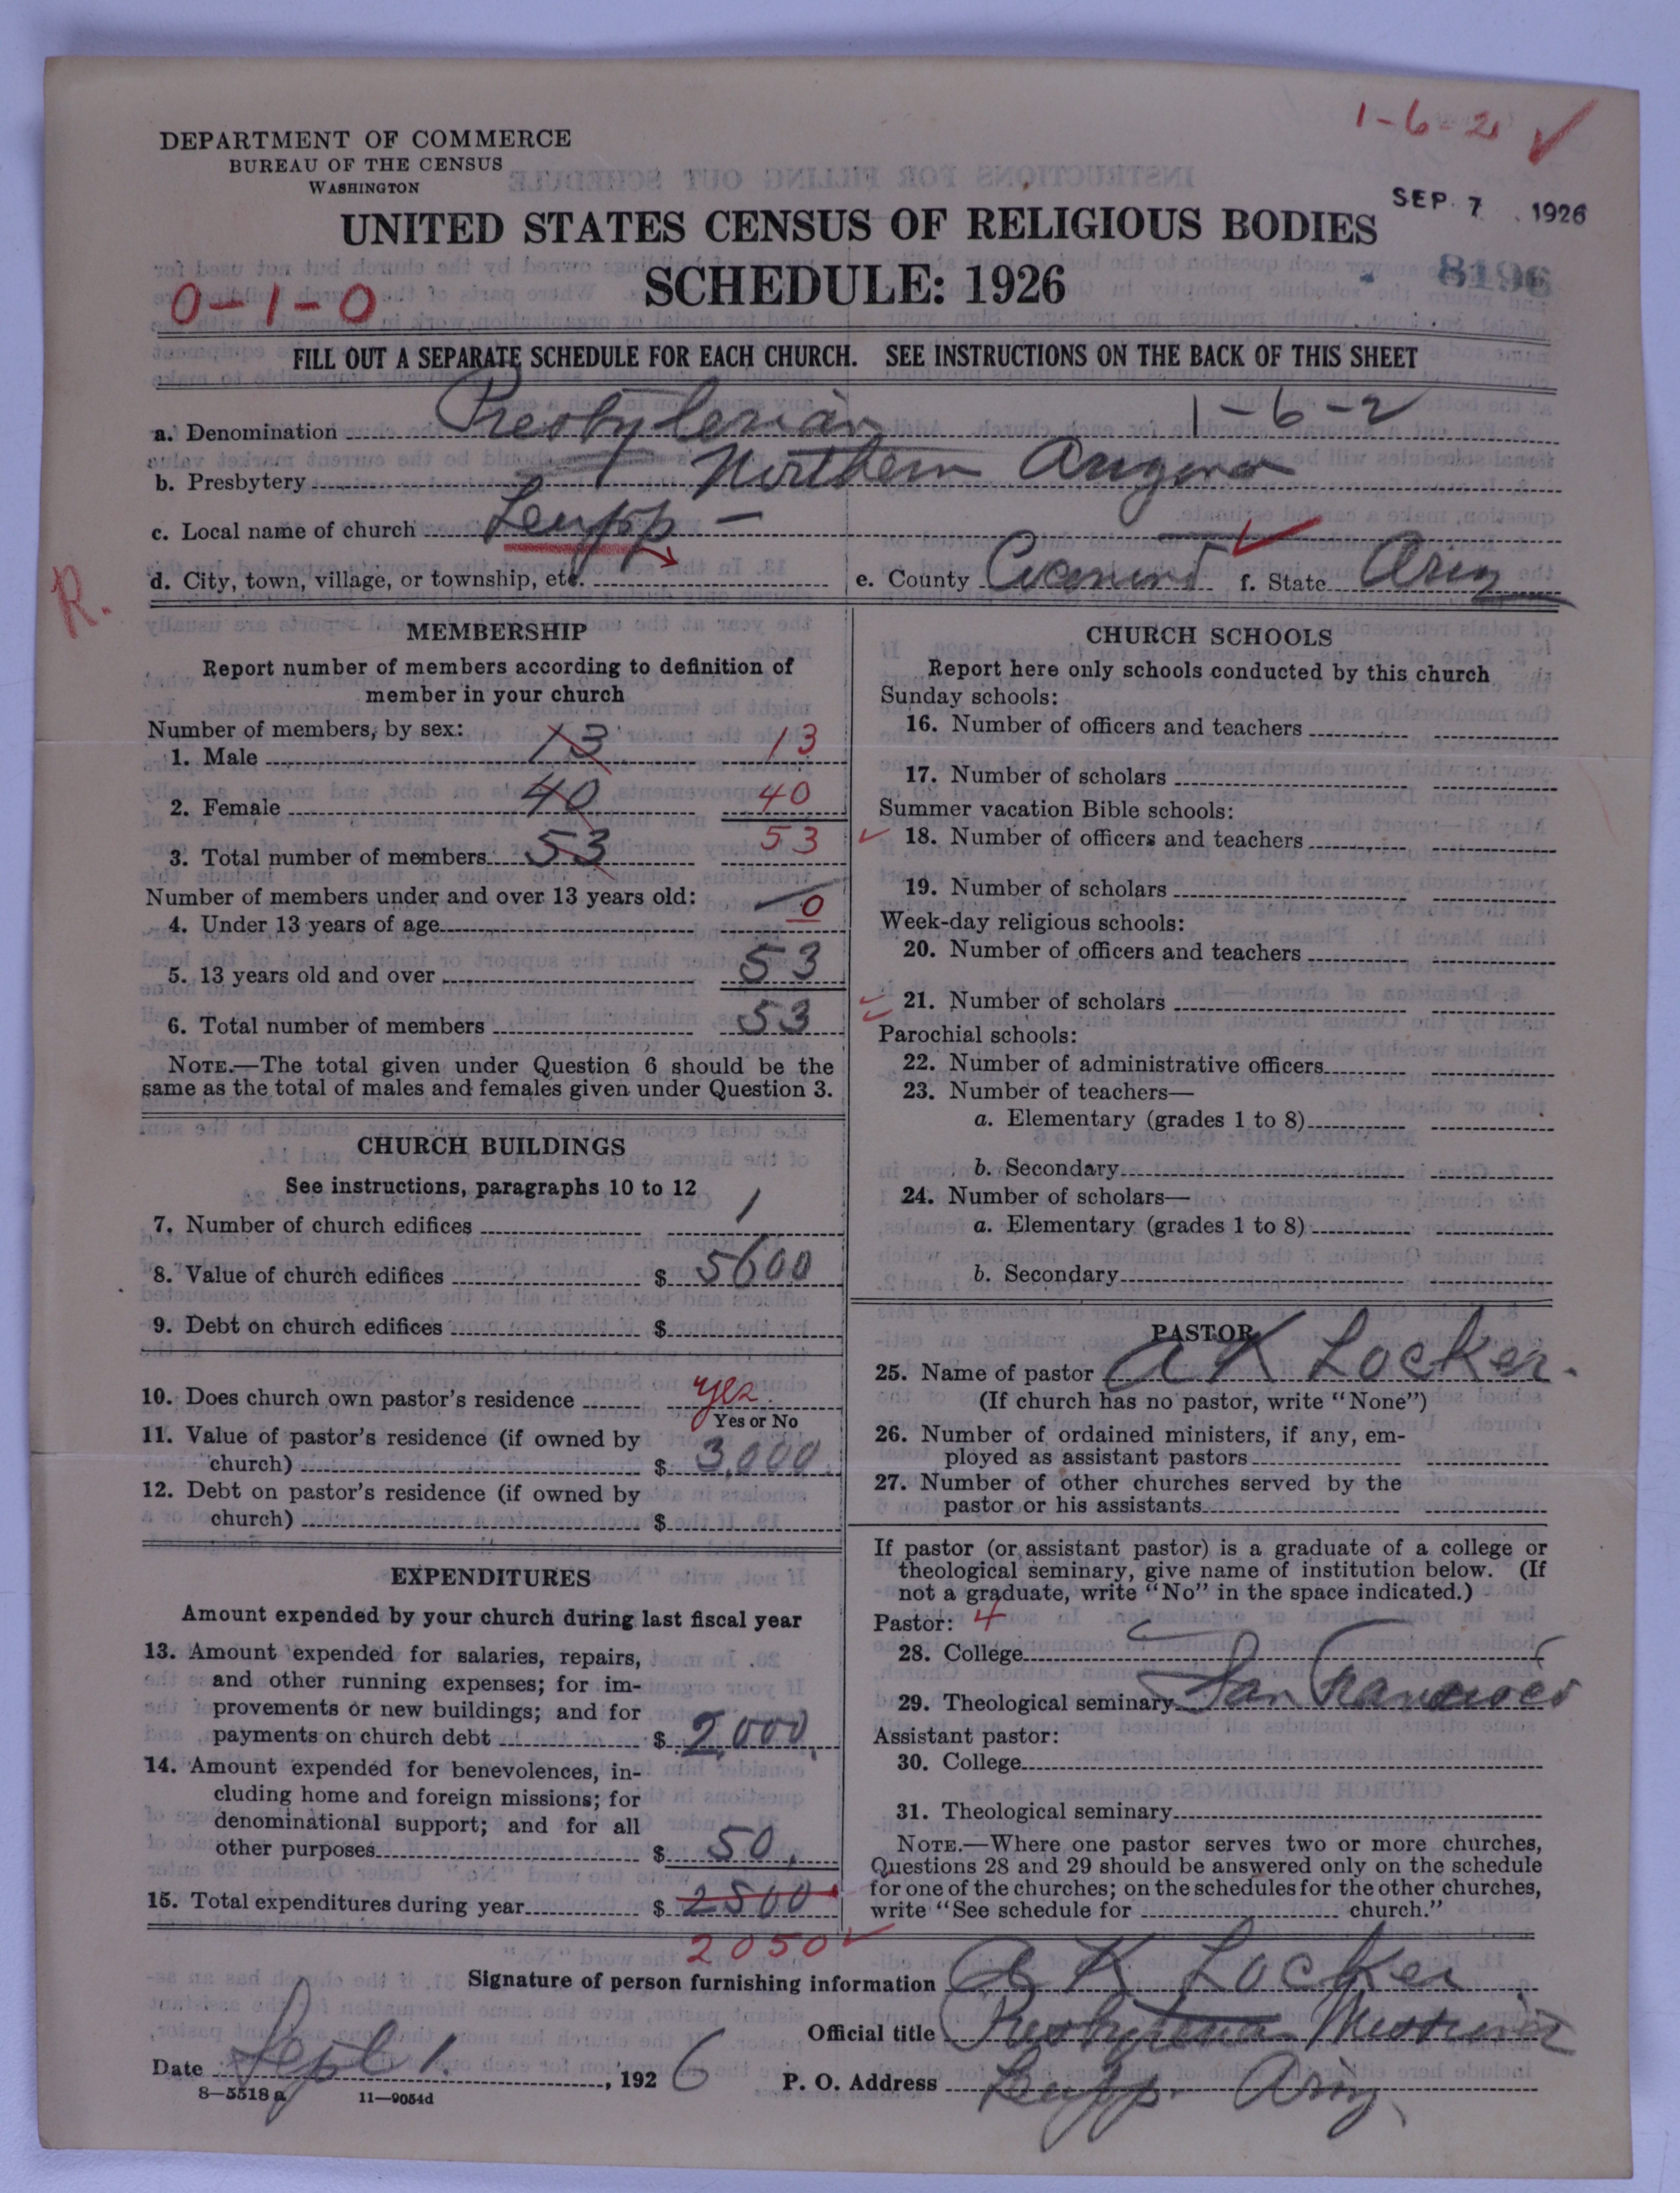 1-6-2 ✓
DEPARTMENT OF COMMERCE
BUREAU OF THE CENSUS
WASHINGTON
SEP 7 1926
UNITED STATES CENSUS OF RELIGIOUS BODIES
8196
SCHEDULE: 1926
0-1-0
FILL OUT A SEPARATE SCHEDULE FOR EACH CHURCH. SEE INSTRUCTIONS ON THE BACK OF THIS SHEET
a. Denomination Presbyterian 1-6-2
b. Presbytery Northern Arizona
c. Local name of church Leupp -
d. City, town, village, or township, etc. e. County Coconino f. State Ariz
R.
MEMBERSHIP
Report number of members according to definition of
member in your church
Number of members, by sex:
1. Male 13 13
2. Female 40 40
3. Total number of members 53 53
Number of members under and over 13 years old:
4. Under 13 years of age 0
5. 13 years old and over 53
6. Total number of members 53
NOTE.—The total given under Question 6 should be the
same as the total of males and females given under Question 3.
CHURCH BUILDINGS
See instructions, paragraphs 10 to 12
7. Number of church edifices 1
8. Value of church edifices $ 5600
9. Debt on church edifices $
10. Does church own pastor's residence yes
Yes or No
11. Value of pastor's residence (if owned by
church) $ 3,000
12. Debt on pastor's residence (if owned by
church) $
EXPENDITURES
Amount expended by your church during last fiscal year
13. Amount expended for salaries, repairs,
and other running expenses; for im-
provements or new buildings; and for
payments on church debt $ 2,000.
14. Amount expended for benevolences, in-
cluding home and foreign missions; for
denominational support; and for all
other purposes $ 50.
15. Total expenditures during year $ 2500
2050 ✓
CHURCH SCHOOLS
Report here only schools conducted by this church
Sunday schools:
16. Number of officers and teachers
17. Number of scholars
Summer vacation Bible schools:
18. Number of officers and teachers
19. Number of scholars
Week-day religious schools:
20. Number of officers and teachers
21. Number of scholars
Parochial schools:
22. Number of administrative officers
23. Number of teachers—
a. Elementary (grades 1 to 8)
b. Secondary
24. Number of scholars—
a. Elementary (grades 1 to 8)
b. Secondary
PASTOR
25. Name of pastor A K Locker.
(If church has no pastor, write "None")
26. Number of ordained ministers, if any, em-
ployed as assistant pastors
27. Number of other churches served by the
pastor or his assistants
If pastor (or assistant pastor) is a graduate of a college or
theological seminary, give name of institution below. (If
not a graduate, write "No" in the space indicated.)
Pastor: 4
28. College
29. Theological seminary San Francisco
Assistant pastor:
30. College
31. Theological seminary
NOTE.—Where one pastor serves two or more churches,
Questions 28 and 29 should be answered only on the schedule
for one of the churches; on the schedules for the other churches,
write "See schedule for church."
Signature of person furnishing information A K Locker
Official title Presbyterian Missionary
Date Sept 1. , 1926 P. O. Address Leupp. Ariz.
8—5518 a 11—9054d